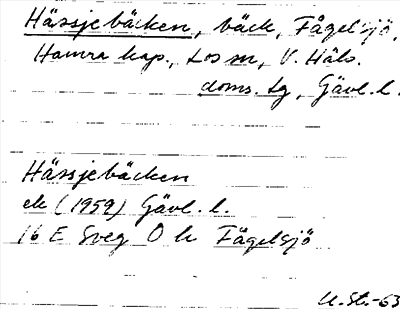 Hässjebäcken, bäck, Fågelsjö,
Hamra kap., Los sn, V. Häls.
doms. tg, Gävl. l.
Hässjebäcken
ek (1959) Gävl. l.
16 E Sveg O k Fågelsjö
U. St. -63